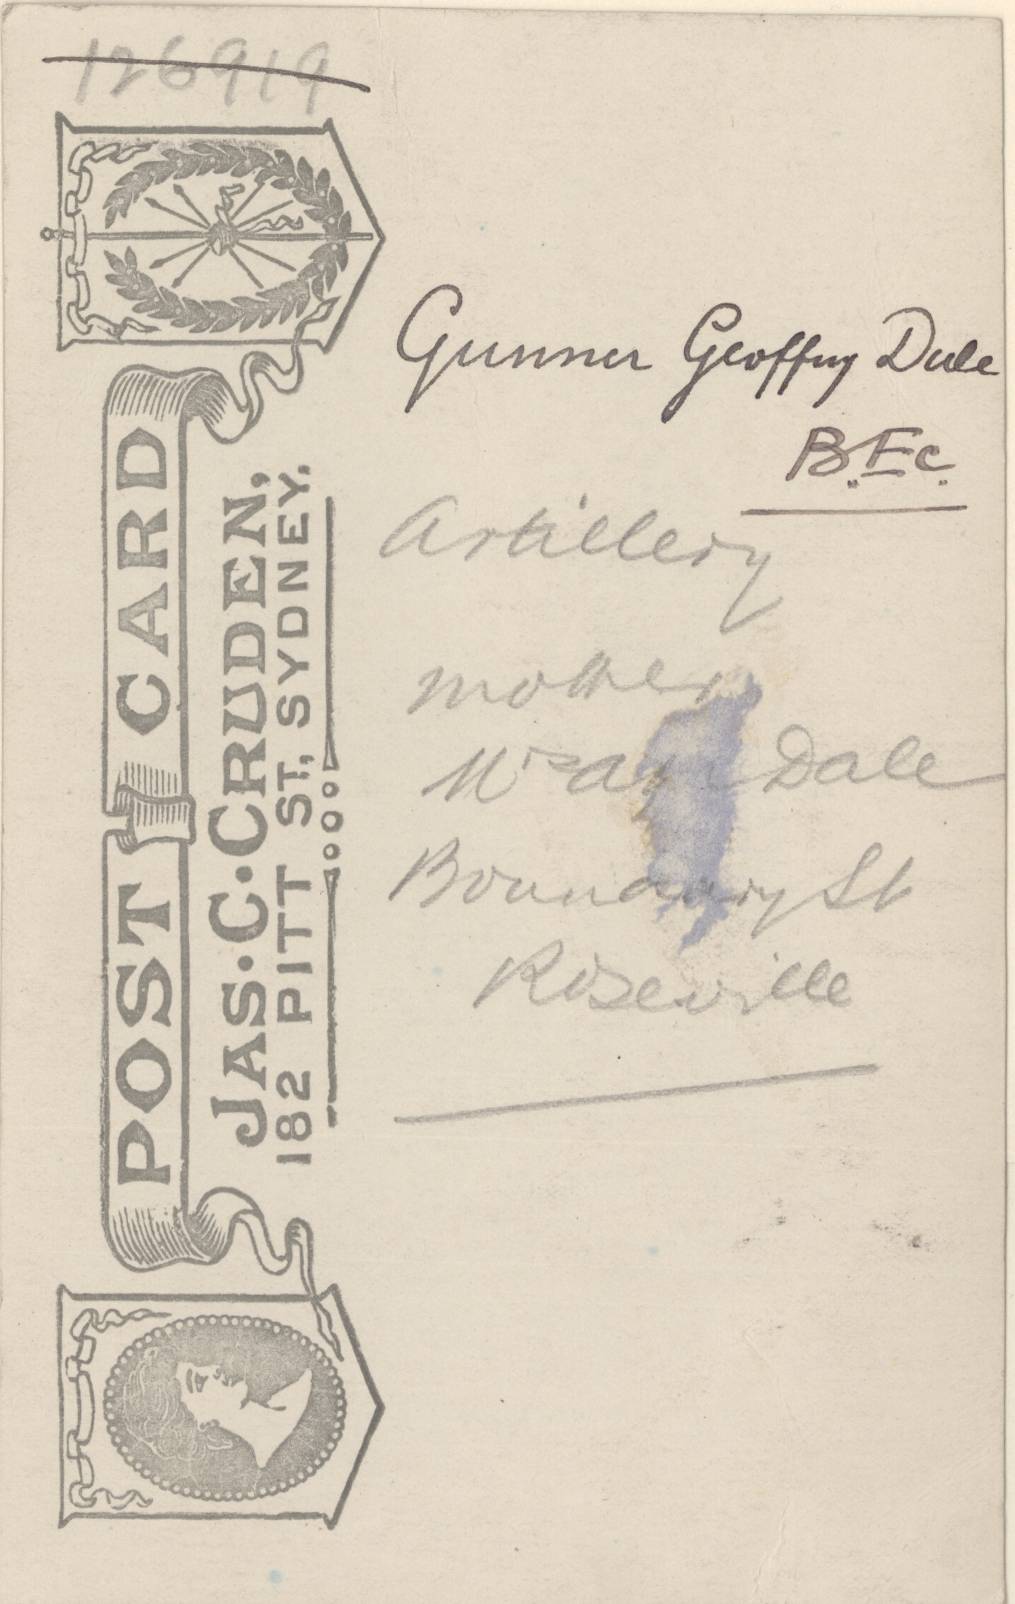 126919
POST CARD
JAS. C. CRUDEN,
182 PITT ST, SYDNEY.
Gunner Geoffry Dale
B.Ec.
Artillery
mother
Mrs Dale
Boundary St
Roseville